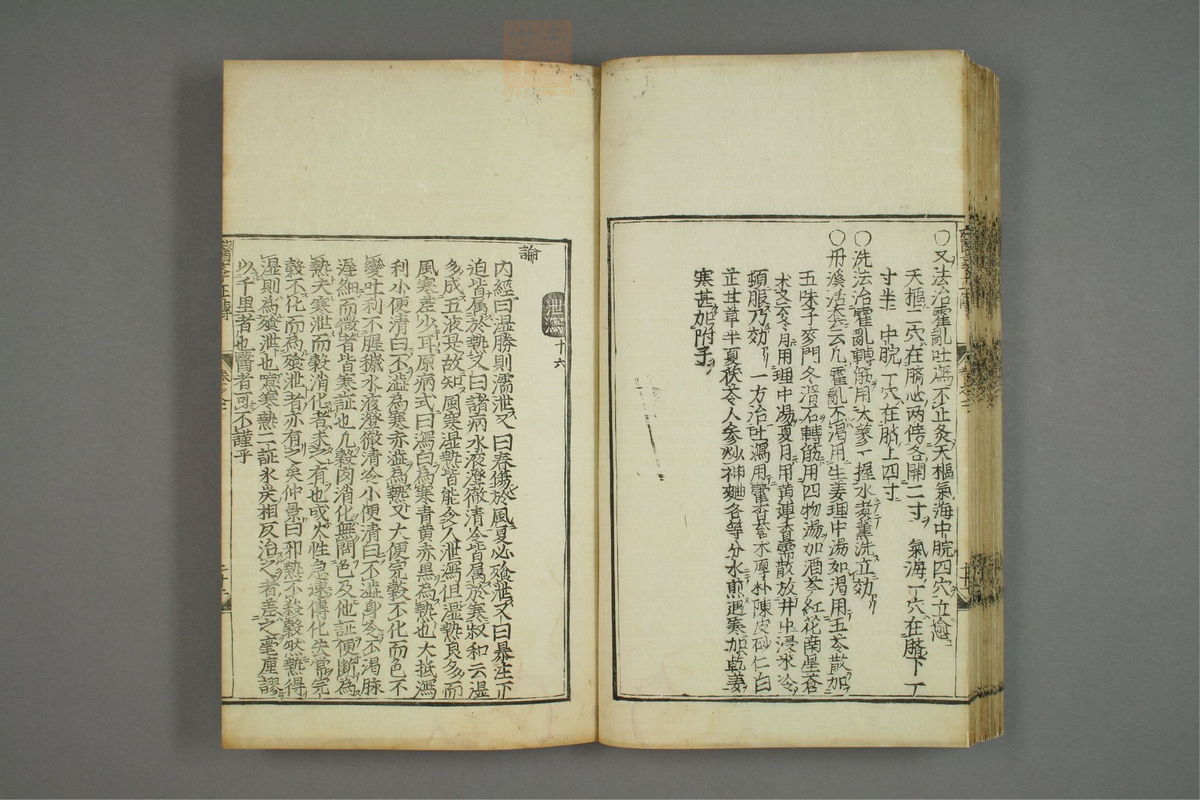 〇又法治霍亂吐瀉不止灸天樞氣海中脘四穴立愈
天樞二穴在臍心兩傍各開二寸 氣海一穴在臍下一
寸半 中脘一穴在臍上四寸
〇洗法治霍亂轉筋用大蓼一握水煮薰洗立効
〇丹溪活套云凡霍亂不渴用生姜理中湯如渴用五苓散加
五味子麥門冬滑石轉筋用四物湯加酒苓紅花南星蒼
术又云冬月用理中湯夏月用黄連香薷散放井中浸氷冷
頓服乃効 一方治吐瀉用藿香蒼术厚朴陳皮砂仁白
芷甘草半夏茯苓人參炒神麯各等分水煎遇寒加乾姜
寒甚加附子
泄瀉 十六
論
内經曰湿勝則濡泄又曰春傷於風夏必飱泄又曰暴注下
迫皆属於熱又曰諸病水液澄徹清冷皆属於寒叔和云湿
多成五液是故知風寒湿熱皆能令人泄瀉但湿熱良多而
風寒差少耳原病式曰瀉白為寒青黄赤黒為熱也大抵瀉
利小便清白不澁為寒赤澁為熱又大便完穀不化而色不
變吐利不腥穢水液澄徹清冷小便清白不澁身冷不渴脉
遲細而微者皆寒証也凡穀肉消化無問色及他証便断為
熱夫寒泄而穀消化者未之有也或火性急速傳化失常完
穀不化而為飱泄者亦有之矣仲景曰邪熱不殺穀然熱得
湿則為飱泄也寒熱二証氷炭相反治之者差之毫厘謬
以千里者也醫者可不謹乎